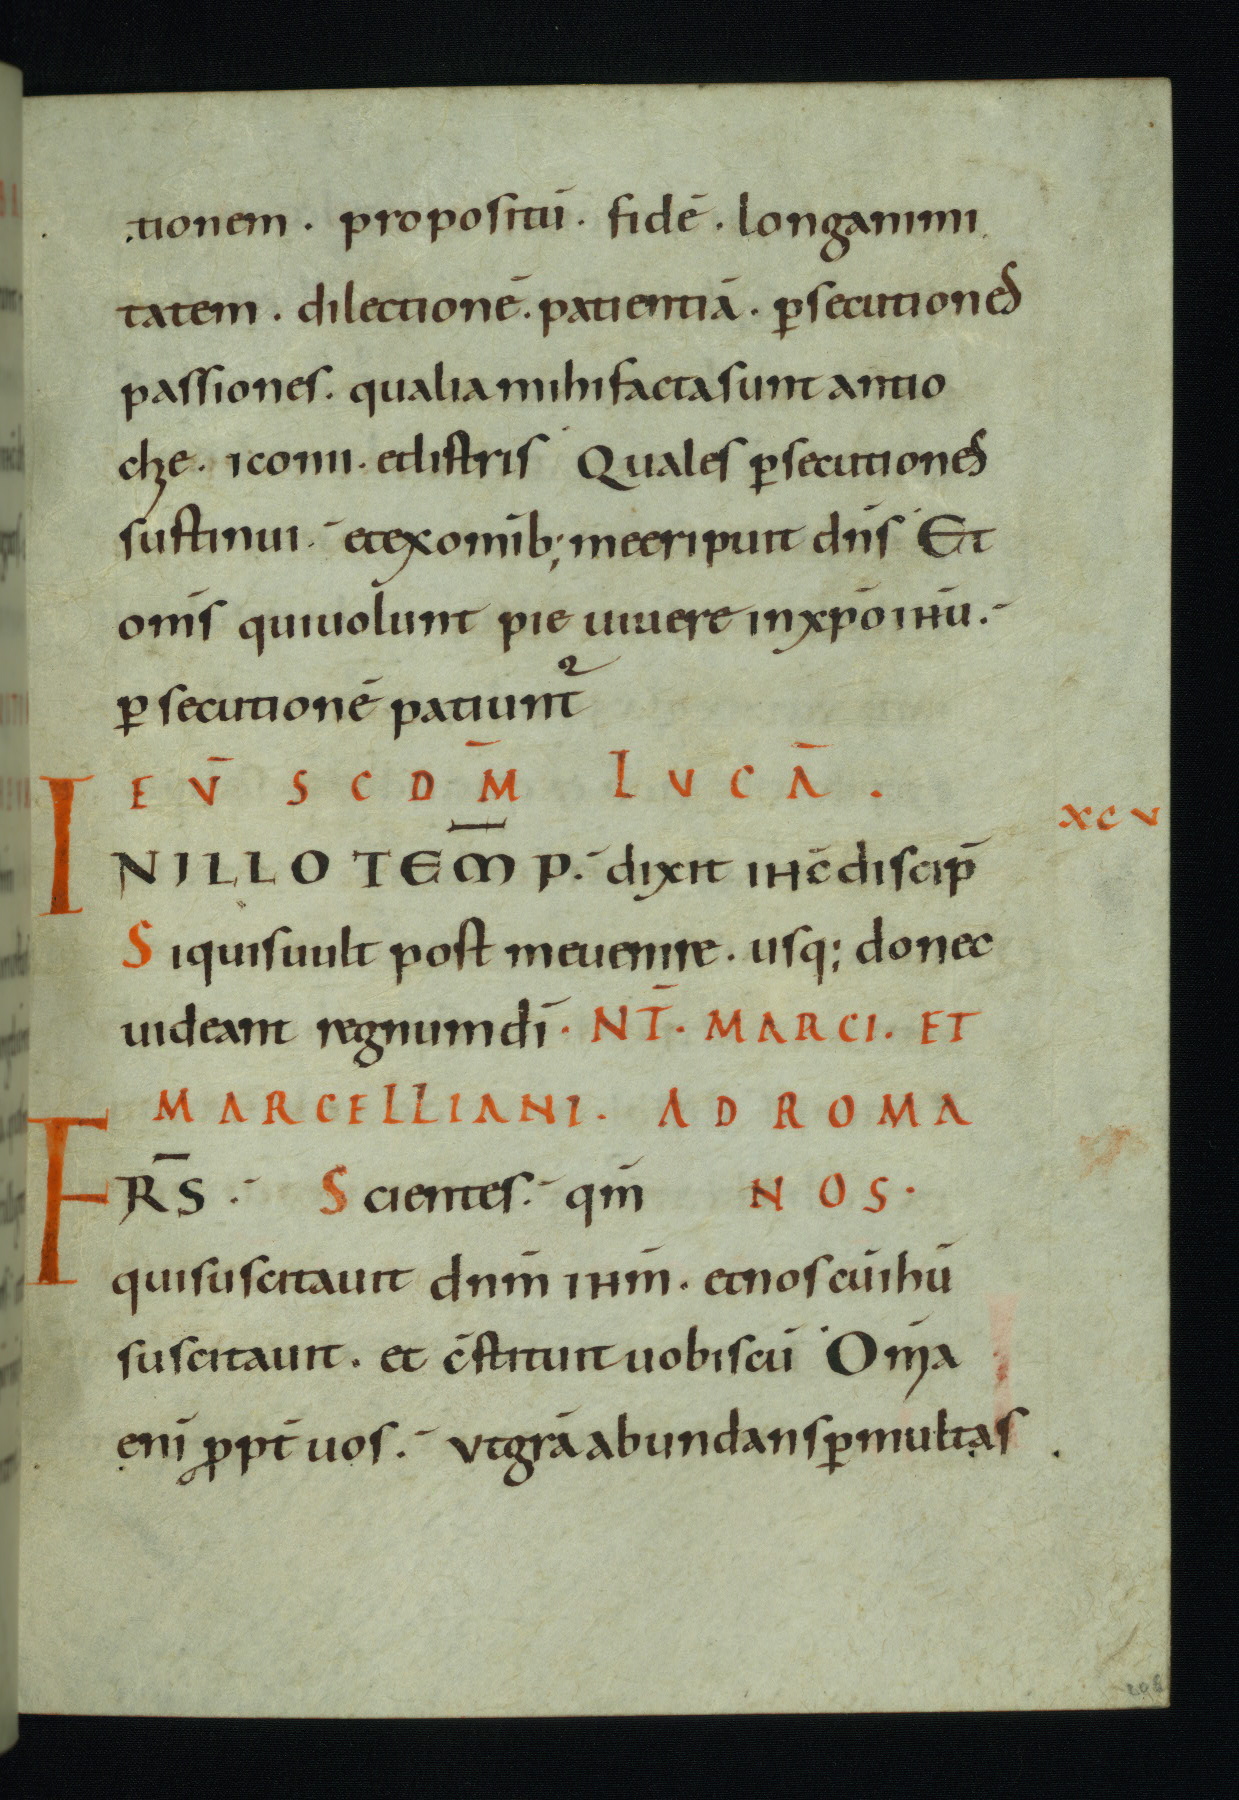 tionem . propositū . fidē . longanimi
tatem . dilectionē . patientiā . p̲secutiones
passiones . qualia mihi facta sunt antio
chę . iconii . et listris Quales p̲secutiones
sustinui . et ex omīb; me eripuit dn̄s Et
om̄s qui uolunt pie uiuere in xp̄o ihū .
p̲secutionē patiunt̄
EV̄ SCDM̄ LVCĀ .
XCV
IN ILLO TEM̄P . dixit ihc̄ discip̄
Si quis uult post me uenire . usq; donec
uideant regnum dī . NT̄ . MARCI . ET
MARCELLIANI . AD ROMA
FR̄S . Scientes . qm̄ NOS .
qui suscitauit dnm̄ ihm̄ . et nos cū ihū
suscitauit . et c̄stituit uobiscū Om̄a
enī ꝓpt̄ uos . vt gr̄a abundans p̲ multas